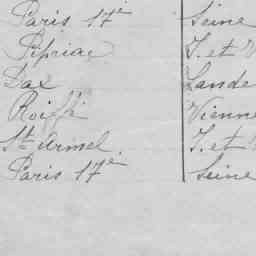 Paris 17e Seine
Pipriac I. et V
Dax Lande
Roiffé Vienne
St Armel. I. et V
Paris 17e Seine